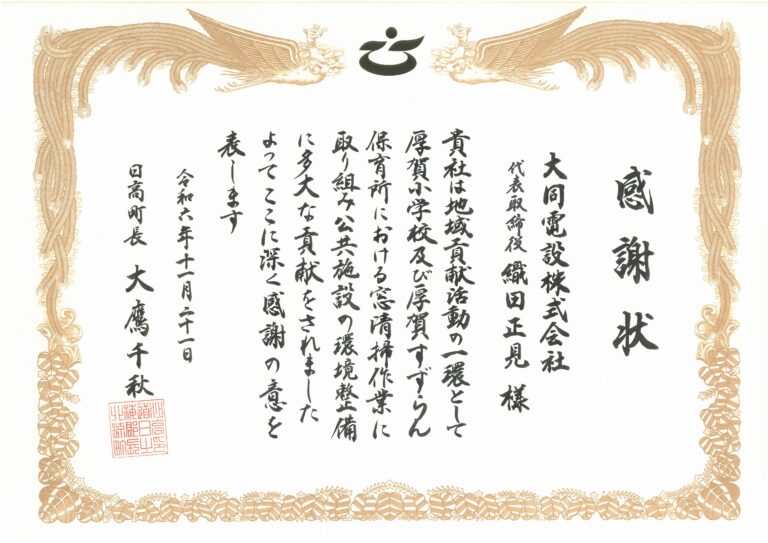 感謝状
大同電設株式会社
代表取締役 織田正見 様
貴社は地域貢献活動の一環として
厚賀小学校及び厚賀すずらん
保育所における窓清掃作業に
取り組み公共施設の環境整備
に多大な貢献をされました
よってここに深く感謝の意を
表します
令和六年十一月二十一日
日高町長 大鷹千秋